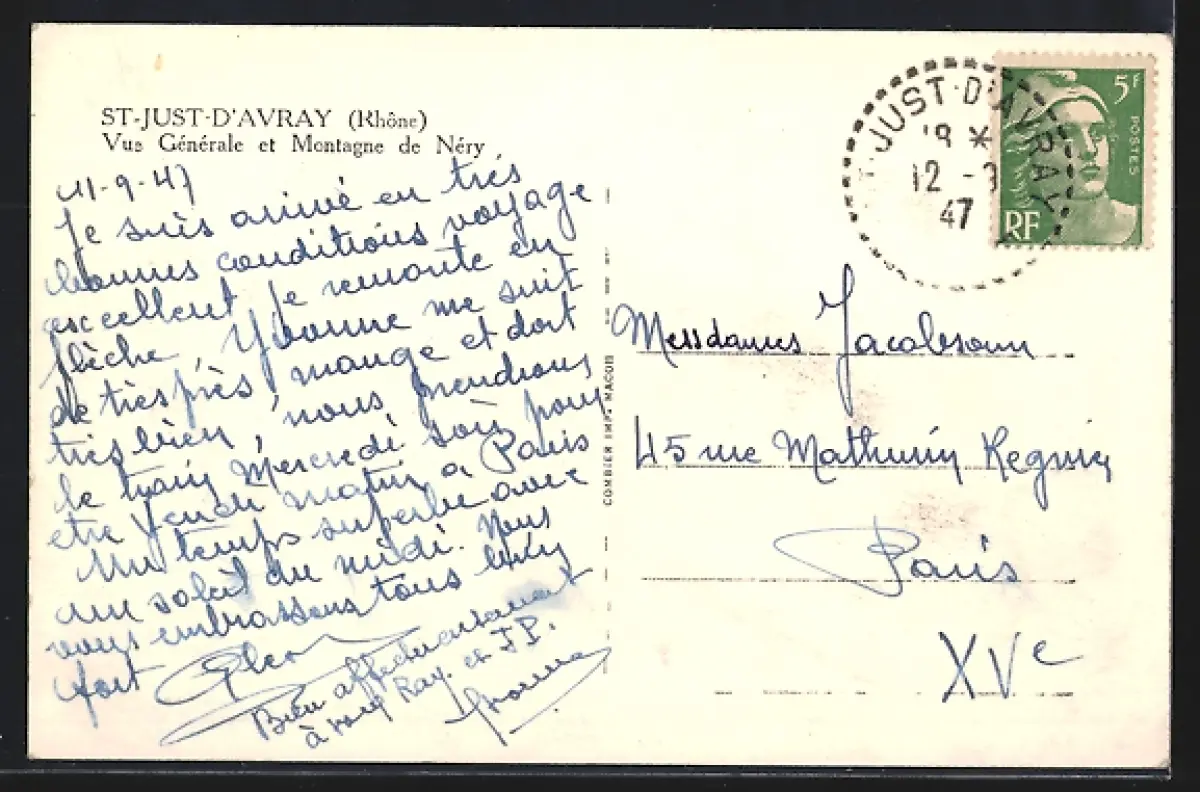 ST-JUST-D'AVRAY (Rhône)
Vue Générale et Montagne de Néry
11-9-47
Je suis arrivé en très
bonnes conditions voyage
excellent, je remonte en
flèche, Yvonne me suit
de très près, mange et dort
très bien, nous prendrons
le train Mercredi soir pour
etre Jeudi matin à Paris
Un temps superbe avec
un soleil du midi. Nous
vous embrassons tous bien
fort
Bien affectueusement
à vous Ray. et J.P.
Yvonne
COMBIER IMP. MACON
ST-JUST-D'AVRAY
18 *
12 - 9
47
5F
POSTES
RF
Messdames Jacobsonn
45 rue Mathurin Regnier
Paris
XVe